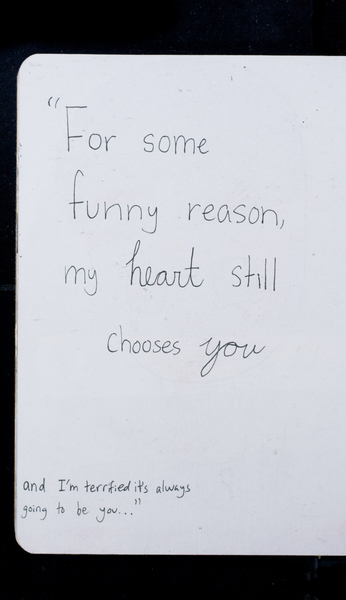 "For some
funny reason,
my heart still
chooses you
and I'm terrified it's always
going to be you..."